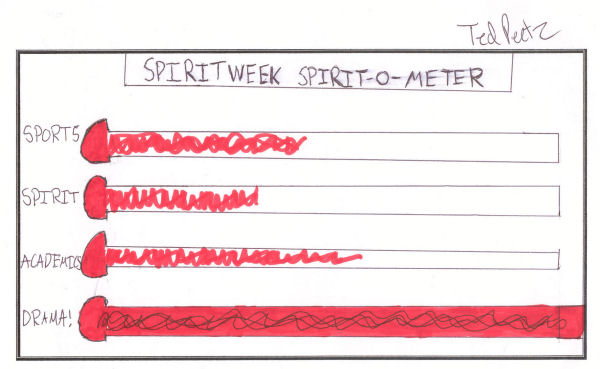 Ted Peetz
SPIRITWEEK SPIRIT-O-METER
SPORTS
SPIRIT
ACADEMICS
DRAMA!